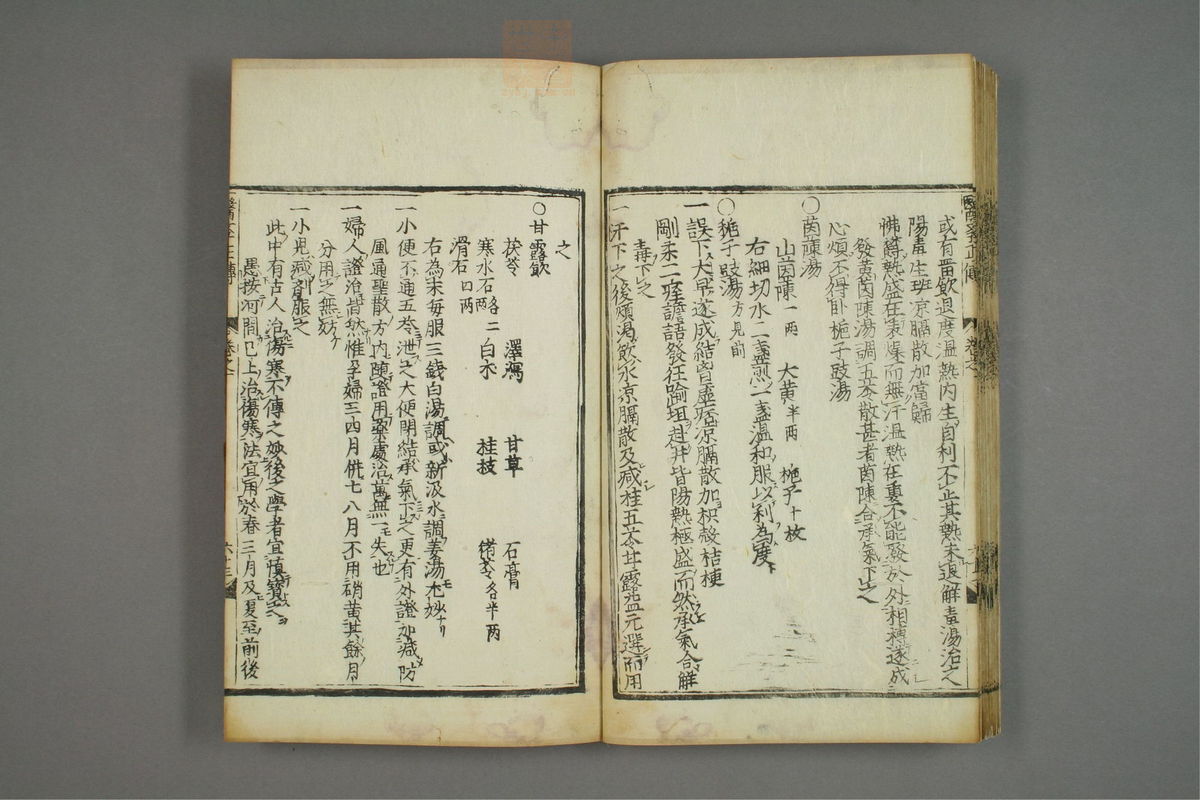 或有留飲過度温熱内生自利不止其熱未退解毒湯治之
陽毒生斑凉膈散加當歸
怫欝熱盛在表燥而無汗温熱在裏不能發於外相搏遂成
發黄茵陳湯調五苓散甚者茵陳合承氣下之
心煩不得卧梔子豉湯
〇茵陳湯
山茵陳一兩 大黄半兩 梔子十枚
右細切水二盞煎一盞温和服以利為度
〇梔子豉湯方見前
一誤下太早遂成結胸虚痞凉膈散加枳殻桔梗
剛柔二痓譫語發狂踰垣赴井皆陽熱極盛而然承氣合解
毒下之
一汗下之後煩渇飲水凉膈散及减桂五苓甘露益元選而用
之
〇甘露飲
茯苓 澤瀉 甘草 石膏
寒水石各二兩 白朮 桂枝 猪苓各半兩
滑石四兩
右為末毎服三錢白湯調或新汲水調姜湯尤妙
一小便不通五苓泄之大便閉結承氣下之更有外證加减防
風通聖散方内陳證用藥處治萬無一失也
一婦人證治皆然惟孕婦三四月併七八月不用硝黄其餘月
分用之無妨
一小兒减剤服之
此中有古人治傷寒不傳之妙後之學者宜慎寶之
愚按河間已上治傷寒法宜用於春三月及夏至前後